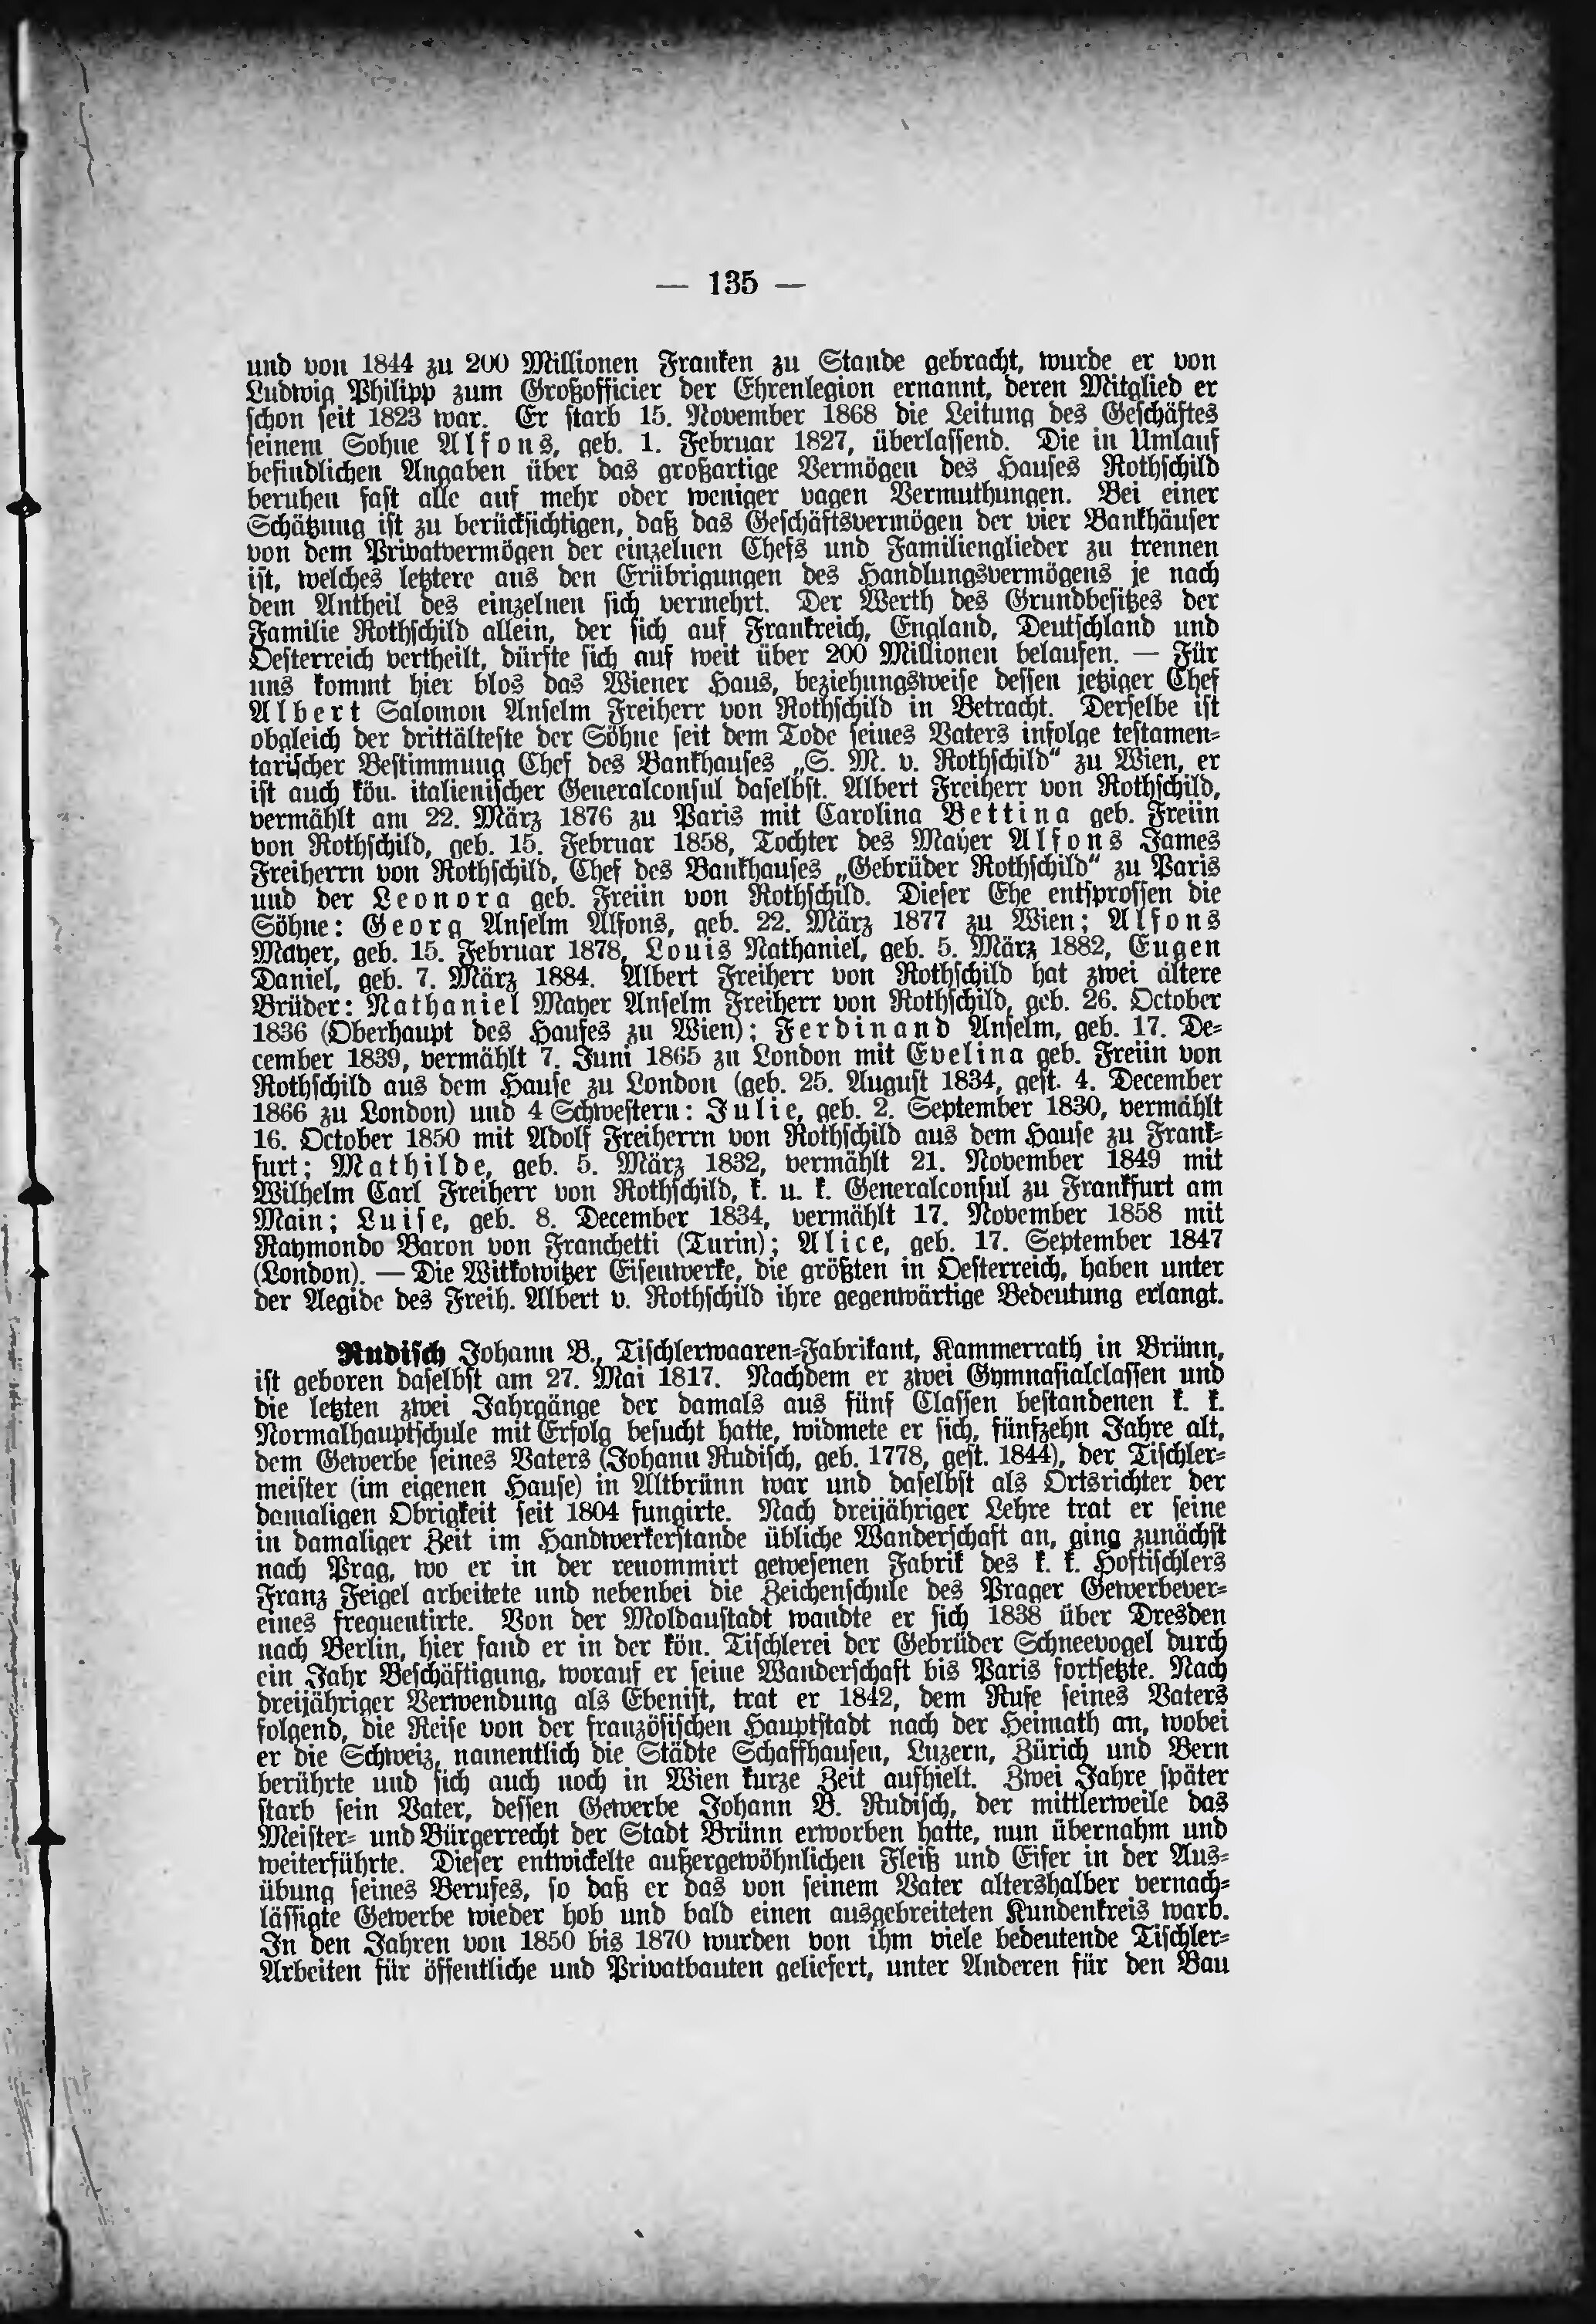 — 135 —
und von 1844 zu 200 Millionen Franken zu Stande gebracht, wurde er von
Ludwig Philipp zum Großofficier der Ehrenlegion ernannt, deren Mitglied er
schon seit 1823 war. Er starb 15. November 1868 die Leitung des Geschäftes
seinem Sohne Alfons, geb. 1. Februar 1827, überlassend. Die in Umlauf
befindlichen Angaben über das großartige Vermögen des Hauses Rothschild
beruhen fast alle auf mehr oder weniger vagen Vermuthungen. Bei einer
Schätzung ist zu berücksichtigen, daß das Geschäftsvermögen der vier Bankhäuser
von dem Privatvermögen der einzelnen Chefs und Familienglieder zu trennen
ist, welches letztere aus den Erübrigungen des Handlungsvermögens je nach
dem Antheil des einzelnen sich vermehrt. Der Werth des Grundbesitzes der
Familie Rothschild allein, der sich auf Frankreich, England, Deutschland und
Oesterreich vertheilt, dürfte sich auf weit über 200 Millionen belaufen. — Für
uns kommt hier blos das Wiener Haus, beziehungsweise dessen jetziger Chef
Albert Salomon Anselm Freiherr von Rothschild in Betracht. Derselbe ist
obgleich der drittälteste der Söhne seit dem Tode seines Vaters infolge testamen-
tarischer Bestimmung Chef des Bankhauses „S. M. v. Rothschild“ zu Wien, er
ist auch kön. italienischer Generalconsul daselbst. Albert Freiherr von Rothschild,
vermählt am 22. März 1876 zu Paris mit Carolina Bettina geb. Freiin
von Rothschild, geb. 15. Februar 1858, Tochter des Mayer Alfons James
Freiherrn von Rothschild, Chef des Bankhauses „Gebrüder Rothschild“ zu Paris
und der Leonora geb. Freiin von Rothschild. Dieser Ehe entsprossen die
Söhne: Georg Anselm Alfons, geb. 22. März 1877 zu Wien; Alfons
Mayer, geb. 15. Februar 1878, Louis Nathaniel, geb. 5. März 1882, Eugen
Daniel, geb. 7. März 1884. Albert Freiherr von Rothschild hat zwei ältere
Brüder: Nathaniel Mayer Anselm Freiherr von Rothschild, geb. 26. October
1836 (Oberhaupt des Hauses zu Wien); Ferdinand Anselm, geb. 17. De-
cember 1839, vermählt 7. Juni 1865 zu London mit Evelina geb. Freiin von
Rothschild aus dem Hause zu London (geb. 25. August 1834, gest. 4. December
1866 zu London) und 4 Schwestern: Julie, geb. 2. September 1830, vermählt
16. October 1850 mit Adolf Freiherrn von Rothschild aus dem Hause zu Frank-
furt; Mathilde, geb. 5. März 1832, vermählt 21. November 1849 mit
Wilhelm Carl Freiherr von Rothschild, k. u. k. Generalconsul zu Frankfurt am
Main; Luise, geb. 8. December 1834, vermählt 17. November 1858 mit
Raymondo Baron von Franchetti (Turin); Alice, geb. 17. September 1847
(London). — Die Witkowitzer Eisenwerke, die größten in Oesterreich, haben unter
der Aegide des Freih. Albert v. Rothschild ihre gegenwärtige Bedeutung erlangt.
Rudisch Johann B., Tischlerwaaren-Fabrikant, Kammerrath in Brünn,
ist geboren daselbst am 27. Mai 1817. Nachdem er zwei Gymnasialclassen und
die letzten zwei Jahrgänge der damals aus fünf Classen bestandenen k. k.
Normalhauptschule mit Erfolg besucht hatte, widmete er sich, fünfzehn Jahre alt,
dem Gewerbe seines Vaters (Johann Rudisch, geb. 1778, gest. 1844), der Tischler-
meister (im eigenen Hause) in Altbrünn war und daselbst als Ortsrichter der
damaligen Obrigkeit seit 1804 fungirte. Nach dreijähriger Lehre trat er seine
in damaliger Zeit im Handwerkerstande übliche Wanderschaft an, ging zunächst
nach Prag, wo er in der renommirt gewesenen Fabrik des k. k. Hoftischlers
Franz Feigel arbeitete und nebenbei die Zeichenschule des Prager Gewerbever-
eines frequentirte. Von der Moldaustadt wandte er sich 1838 über Dresden
nach Berlin, hier fand er in der kön. Tischlerei der Gebrüder Schneevogel durch
ein Jahr Beschäftigung, worauf er seine Wanderschaft bis Paris fortsetzte. Nach
dreijähriger Verwendung als Ebenist, trat er 1842, dem Rufe seines Vaters
folgend, die Reise von der französischen Hauptstadt nach der Heimath an, wobei
er die Schweiz, namentlich die Städte Schaffhausen, Luzern, Zürich und Bern
berührte und sich auch noch in Wien kurze Zeit aufhielt. Zwei Jahre später
starb sein Vater, dessen Gewerbe Johann B. Rudisch, der mittlerweile das
Meister- und Bürgerrecht der Stadt Brünn erworben hatte, nun übernahm und
weiterführte. Dieser entwickelte außergewöhnlichen Fleiß und Eifer in der Aus-
übung seines Berufes, so daß er das von seinem Vater altershalber vernach-
lässigte Gewerbe wieder hob und bald einen ausgebreiteten Kundenkreis warb.
In den Jahren von 1850 bis 1870 wurden von ihm viele bedeutende Tischler-
Arbeiten für öffentliche und Privatbauten geliefert, unter Anderen für den Bau